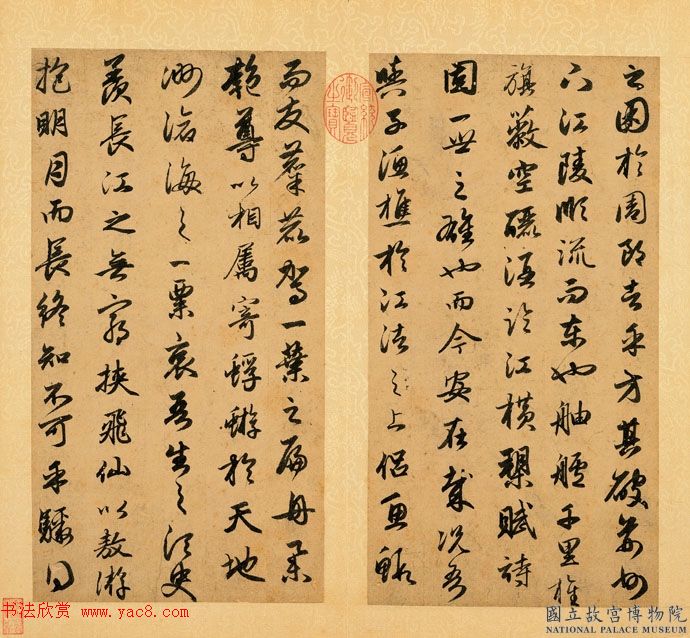 之困於周郎者乎方其破荊州
下江陵順流而東也舳艫千里旌
旗蔽空釃酒臨江橫槊賦詩
固一世之雄也而今安在哉況吾
與子漁樵於江渚之上侶魚蝦
宣統御覽之寶
而友麋鹿駕一葉之扁舟舉
匏尊以相屬寄蜉蝣於天地
渺滄海之一粟哀吾生之須臾
羨長江之無窮挾飛仙以敖游
抱明月而長終知不可乎驟得
书法欣赏 www.yac8.com
國立故宮博物院
NATIONAL PALACE MUSEUM